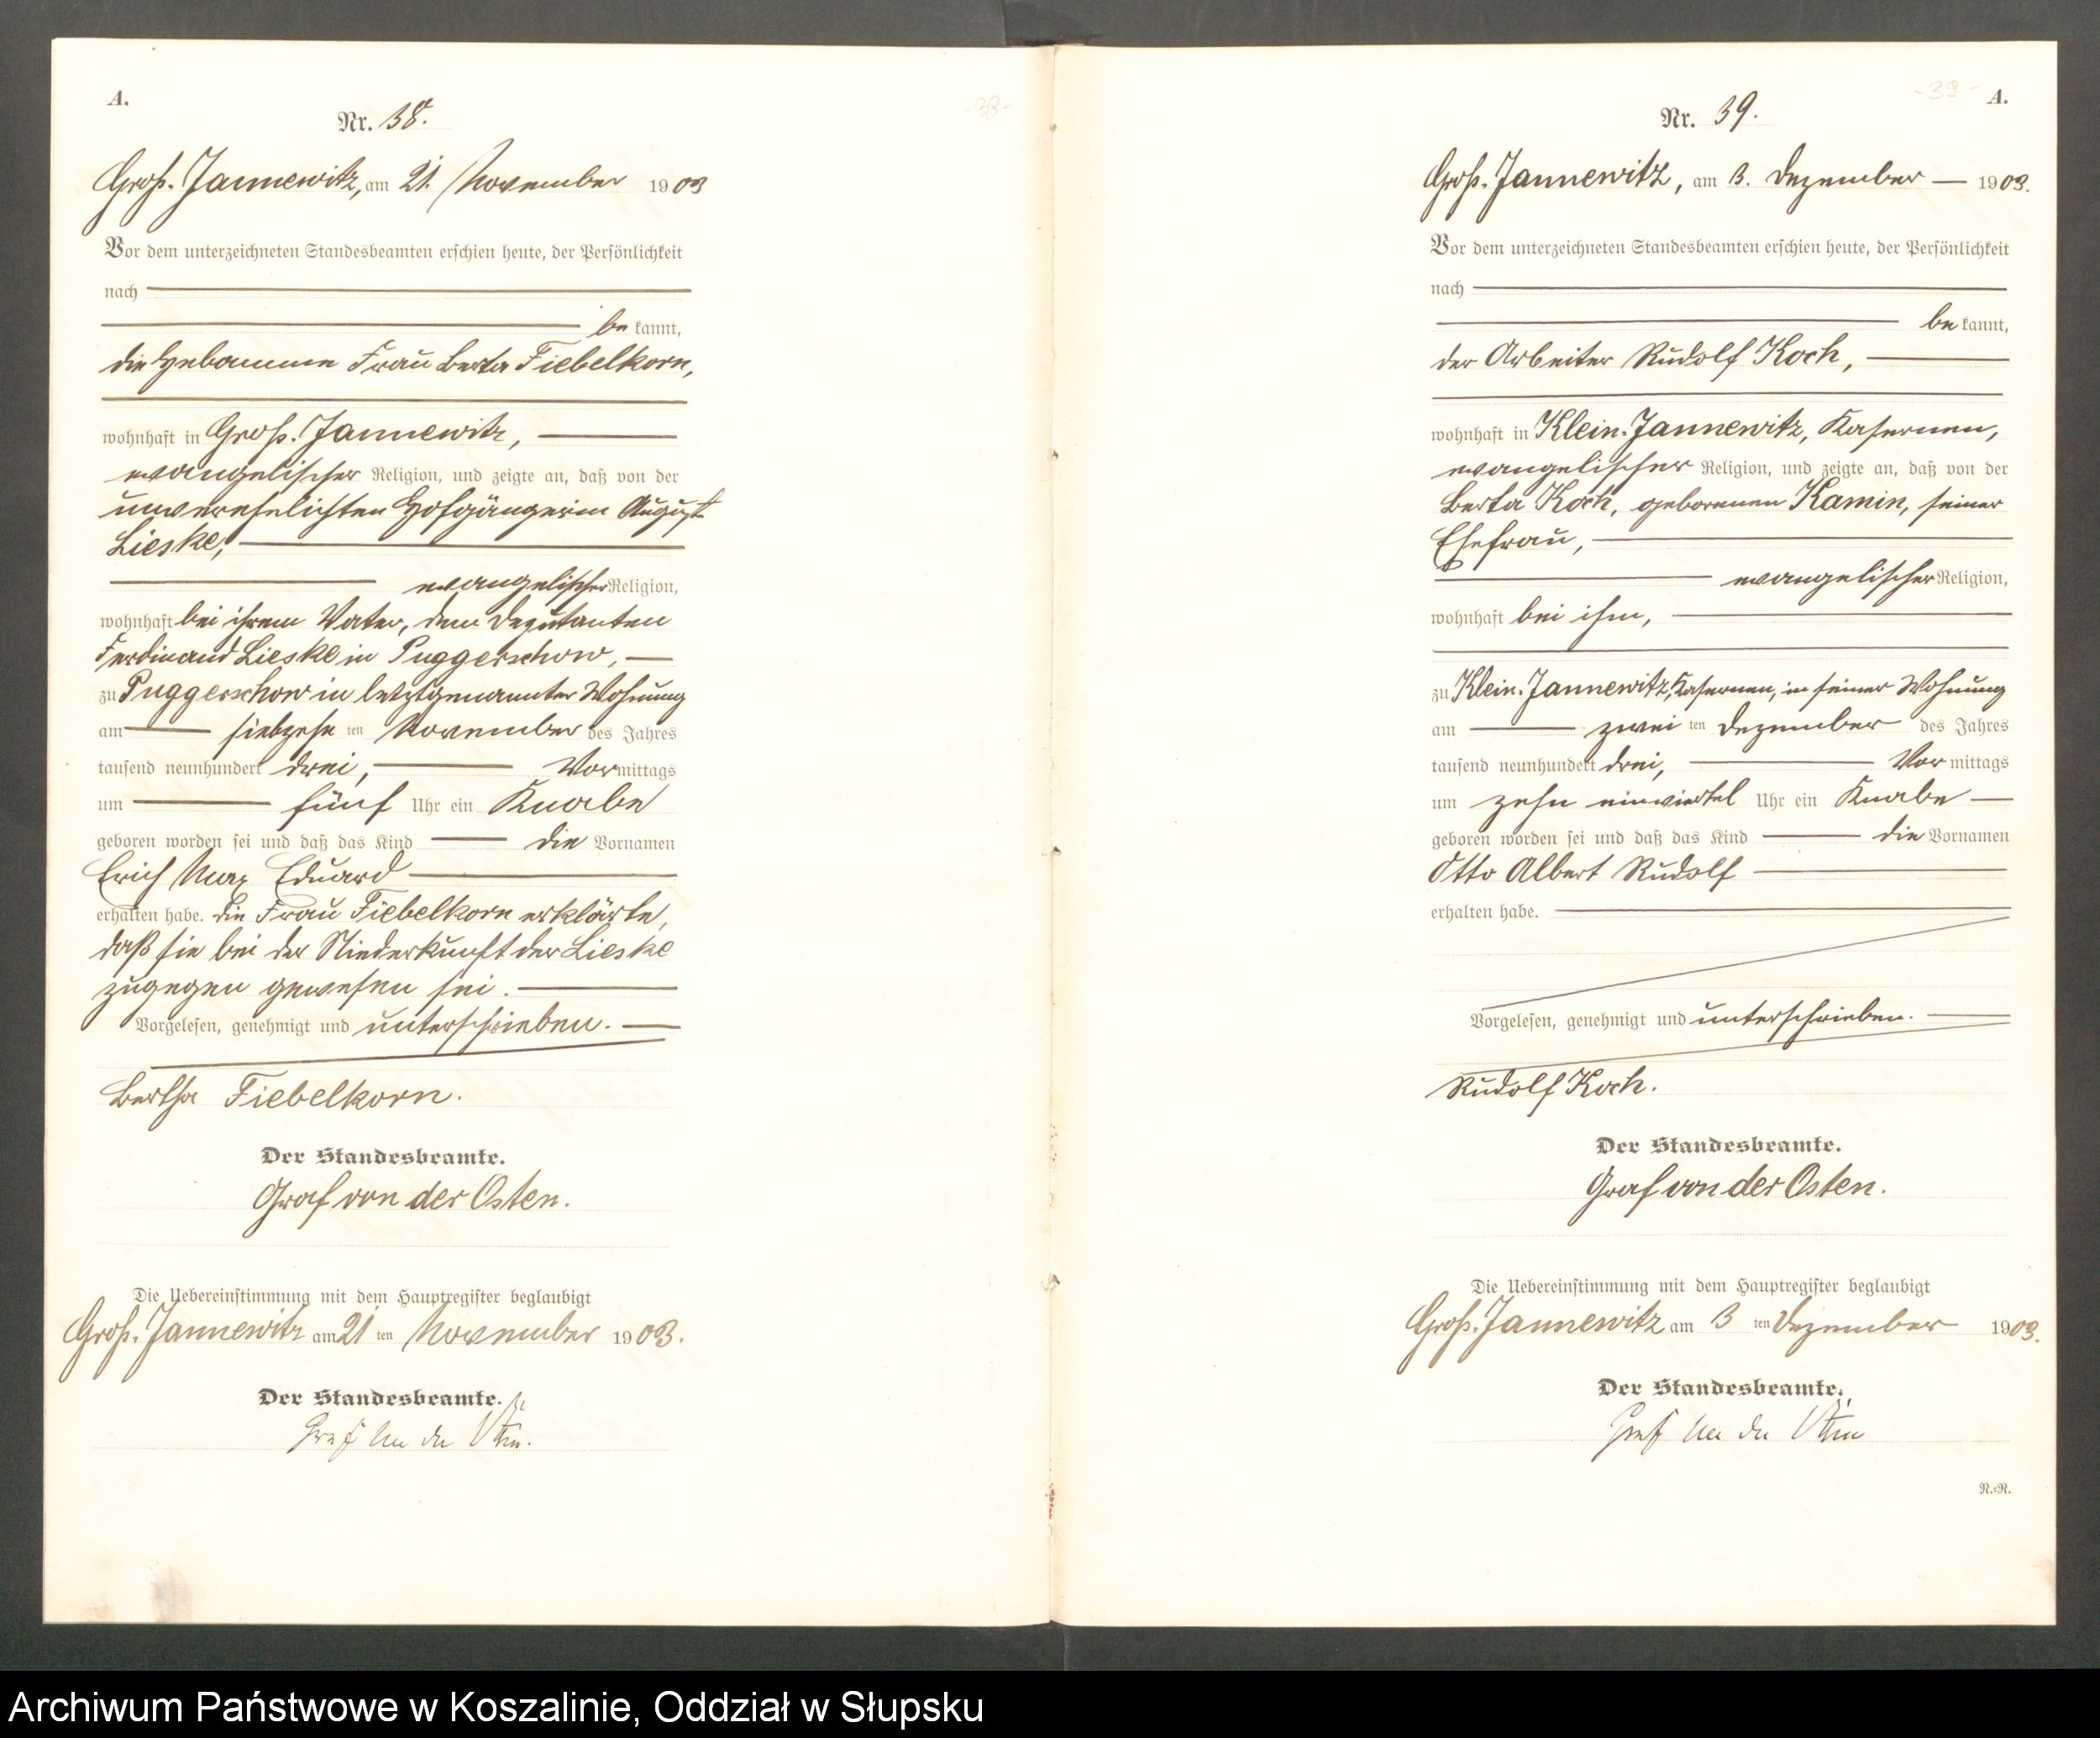 A.
Nr. 38.
Groß-Jannewitz, am 21. November 1903
Vor dem unterzeichneten Standesbeamten erschien heute, der Persönlichkeit
nach
be kannt,
die Hebamme Frau Berta Fiebelkorn,
wohnhaft in Groß-Jannewitz,
evangelischer Religion, und zeigte an, daß von der
unverehelichten Hofgängerin August
Lieske,
evangelischer Religion,
wohnhaft bei ihrem Vater, dem Deputanten
Ferdinand Lieske in Puggerschow,
zu Puggerschow in letztgenannter Wohnung
am siebzehn ten November des Jahres
tausend neunhundert drei, Vormittags
um fünf Uhr ein Knabe
geboren worden sei und daß das Kind die Vornamen
Erich Max Eduard
erhalten habe. Die Frau Fiebelkorn erklärte,
daß sie bei der Niederkunft der Lieske
zugegen gewesen sei.
Vorgelesen, genehmigt und unterschrieben.
Bertha Fiebelkorn.
Der Standesbeamte.
Graf von der Osten.
Die Uebereinstimmung mit dem Hauptregister beglaubigt
Groß-Jannewitz am 21 ten November 1903.
Der Standesbeamte.
Graf von der Osten.
-38-
-39-
A.
Nr. 39.
Groß-Jannewitz, am 3. Dezember 1903.
Vor dem unterzeichneten Standesbeamten erschien heute, der Persönlichkeit
nach
be kannt,
der Arbeiter Rudolf Koch,
wohnhaft in Klein-Jannewitz, Kasernen,
evangelischer Religion, und zeigte an, daß von der
Berta Koch, geborenen Kamin, seiner
Ehefrau,
evangelischer Religion,
wohnhaft bei ihm,
zu Klein-Jannewitz, Kasernen, in seiner Wohnung
am zwei ten Dezember des Jahres
tausend neunhundert drei, Vor mittags
um zehn einviertel Uhr ein Knabe
geboren worden sei und daß das Kind die Vornamen
Otto Albert Rudolf
erhalten habe.
Vorgelesen, genehmigt und unterschrieben.
Rudolf Koch.
Der Standesbeamte.
Graf von der Osten.
Die Uebereinstimmung mit dem Hauptregister beglaubigt
Groß-Jannewitz am 3 ten Dezember 1903.
Der Standesbeamte.
Graf von der Osten
N.=R.
Archiwum Państwowe w Koszalinie, Oddział w Słupsku